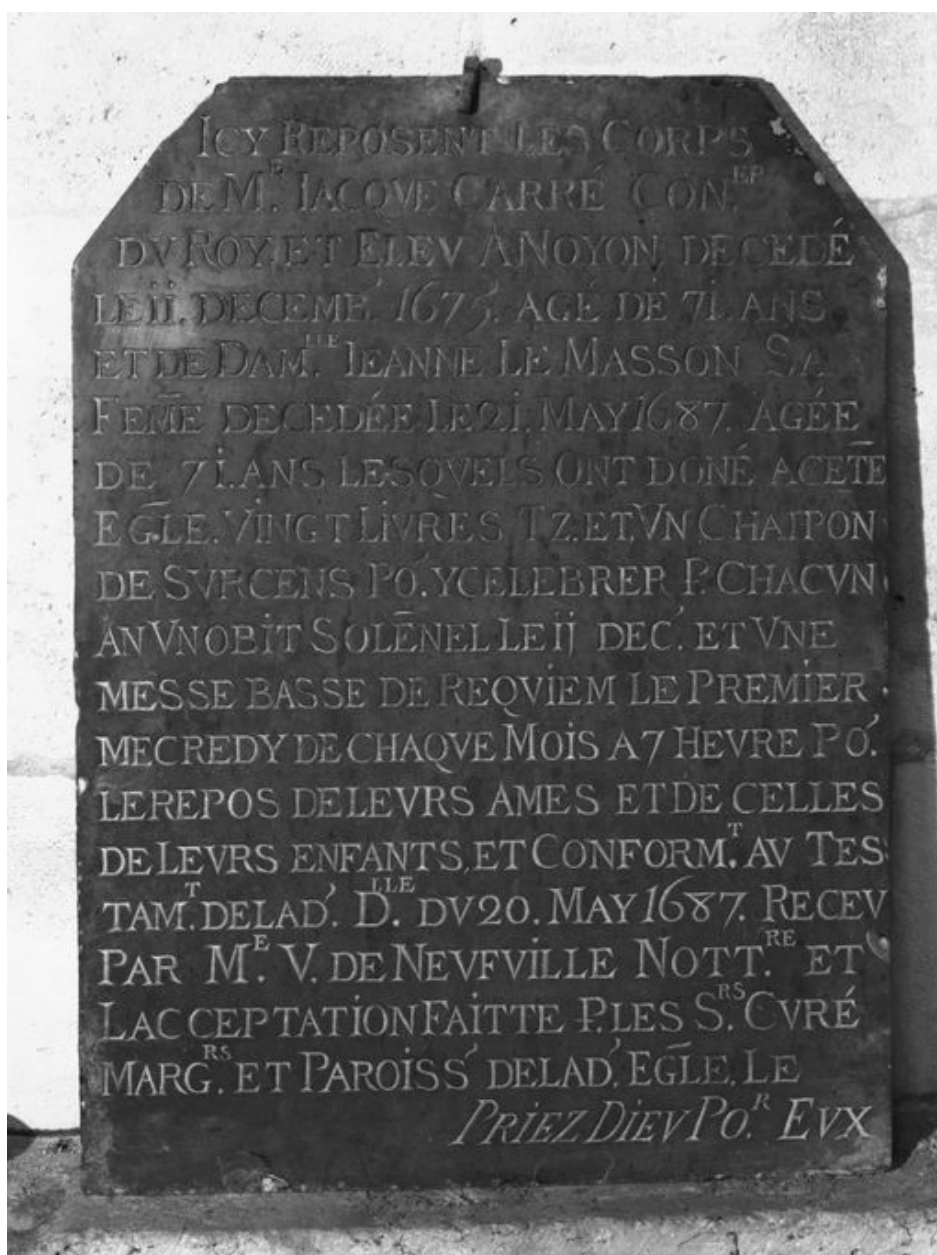 ICY REPOSENT LES CORPS
DE M.E IACQVE CARRÉ CON.ER
DV ROY. ET ELEV A NOYON DECEDÉ
LE ii. DECEMB.' 1675. AGÉ DE 7i. ANS
ET DE DAM.LLE IEANNE LE MASSON SA
FEM̄E DECEDÉE LE 2i. MAY 1687. AGÉE
DE 7i. ANS LESQVELS ONT DONÉ A CET̄E
EḠLE. VINGT LIVRES TZ. ET VN CHAPON
DE SVRCENS PO'. Y CELEBRER P. CHACVN
AN VN OBIT SOLĒNEL LE ij DEC'. ET VNE
MESSE BASSE DE REQVIEM LE PREMIER
MECREDY DE CHAQVE MOIS A 7 HEVRE PO'.
LE REPOS DE LEVRS AMES ET DE CELLES
DE LEVRS ENFANTS, ET CONFORM.T AV TES
TAM.T DE LAD'. D.LLE DV 20. MAY 1687. RECEV
PAR M.E V. DE NEVFVILLE NOTT.RE ET
LACCEPTATION FAITTE P. LES S.RS CVRÉ
MARG.RS ET PAROISS' DE LAD'. EḠLE. LE
PRIEZ DIEV PO.R EVX